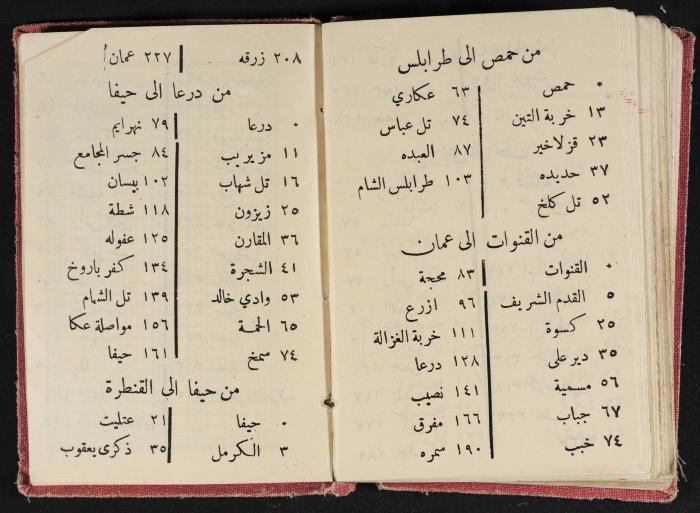 من حمص الى طرابلس
٠ حمص ٦٣ عكاري
١٣ خربة التين ٧٤ تل عباس
٢٣ قزلاخير ٨٧ العبده
٣٧ حديده ١٠٣ طرابلس الشام
٥٢ تل كلخ
من القنوات الى عمان
٠ القنوات ٨٣ محجة
٥ القدم الشريف ٩٦ ازرع
٢٥ كسوة ١١١ خربة الغزالة
٣٥ دير علي ١٢٨ درعا
٥٦ مسمية ١٤١ نصيب
٦٧ جباب ١٦٦ مفرق
٧٤ خبب ١٩٠ سمره
٢٠٨ زرقه ٢٢٧ عمان
من درعا الى حيفا
٠ درعا ٧٩ نهرايم
١١ مزيريب ٨٤ جسر المجامع
١٦ تل شهاب ١٠٢ بيسان
٢٥ زيزون ١١٨ شطة
٣٦ المقارن ١٢٥ عفوله
٤١ الشجرة ١٣٤ كفر باروخ
٥٣ وادي خالد ١٣٩ تل الشمام
٦٥ الحمة ١٥٦ مواصلة عكا
٧٤ سمخ ١٦١ حيفا
من حيفا الى القنطرة
٠ حيفا ٢١ عتليت
٣ الكرمل ٣٥ ذكرى يعقوب